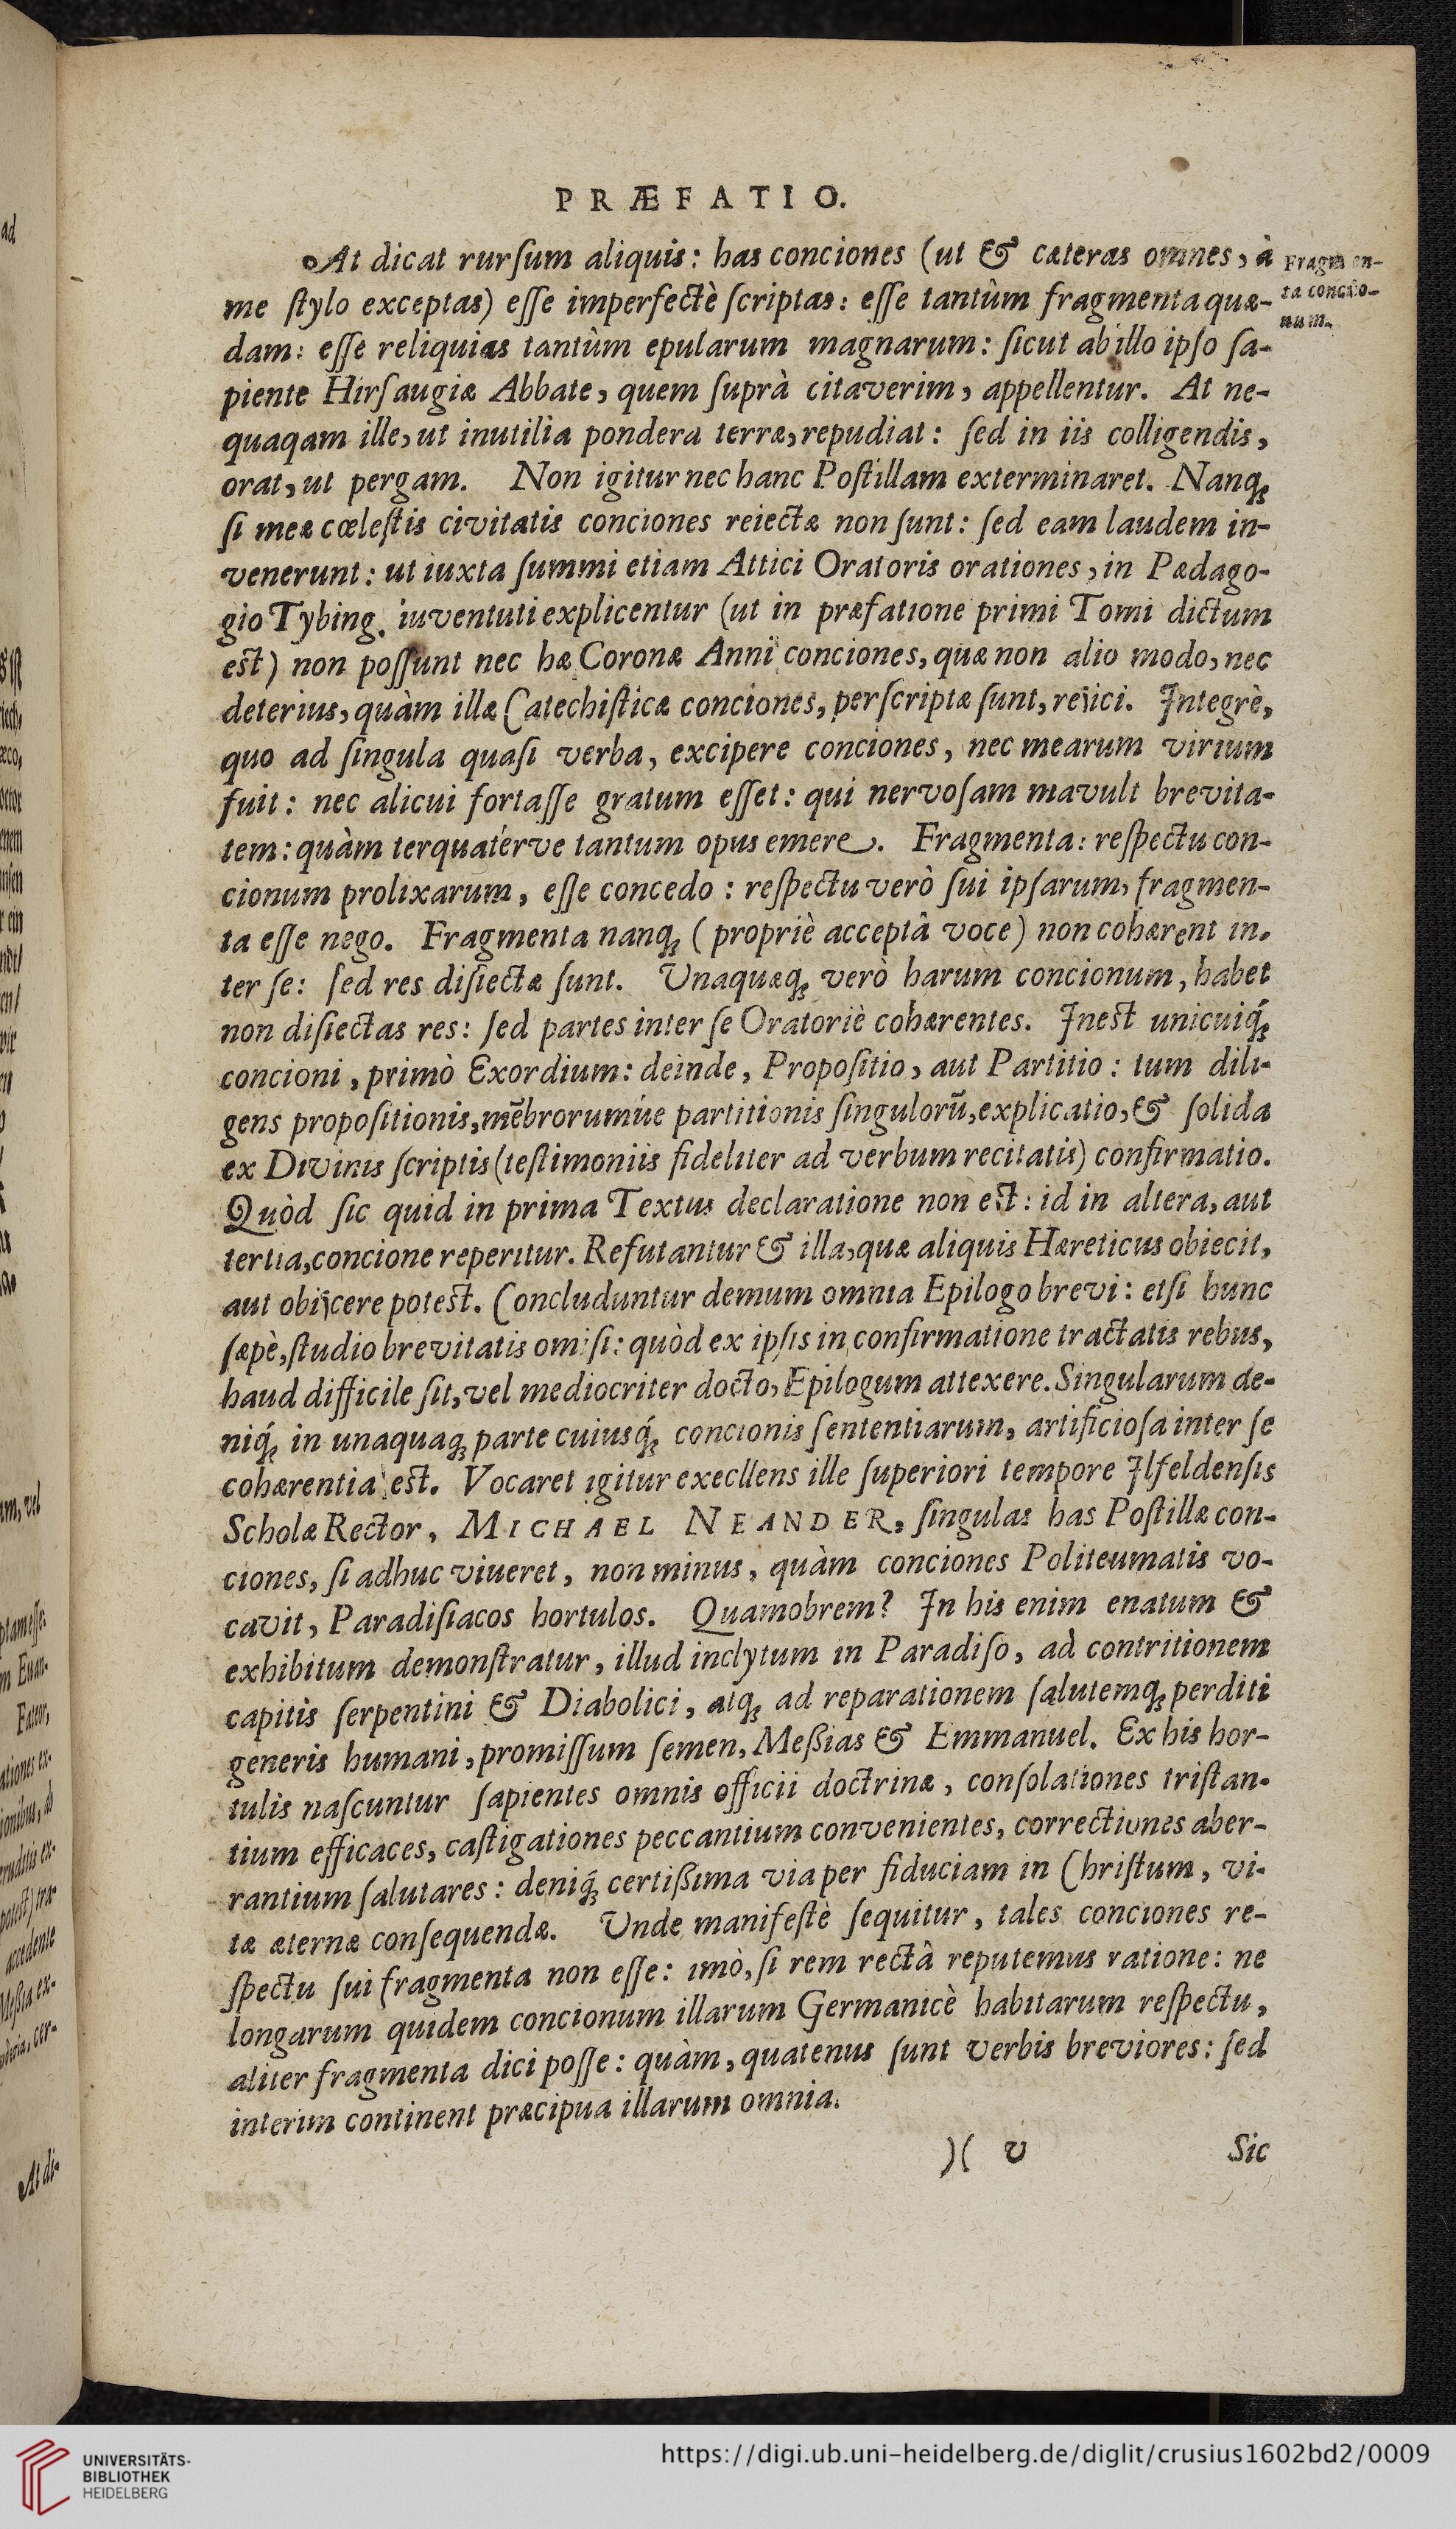 PRÆFATIO.
At dicat rurſum aliquis: has conciones (ut & cæteras omnes, à
me ſtylo exceptas) eſſe imperfectè ſcriptas: eſſe tantùm fragmenta quæ-
dam: eſſe reliquias tantùm epularum magnarum: ſicut ab illo ipſo ſa-
piente Hirſaugiæ Abbate, quem ſuprà citaverim, appellentur. At ne-
quaqam ille, ut inutilia pondera terræ, repudiat: ſed in iis colligendis,
orat, ut pergam. Non igitur nec hanc Poſtillam exterminaret. Nanq;
ſi meæ cœleſtis civitatis conciones reiectæ non ſunt: ſed eam laudem in-
venerunt: ut iuxta ſummi etiam Attici Oratoris orationes, in Pædago-
gio Tybing. iuventuti explicentur (ut in præfatione primi Tomi dictum
est) non poſſunt nec hæ Coronæ Anni conciones, quæ non alio modo, nec
deterius, quàm illæ Catechiſticæ conciones, perſcriptæ ſunt, reiici. Integrè,
quo ad ſingula quaſi verba, excipere conciones, nec mearum virium
fuit: nec alicui fortaſſe gratum eſſet: qui nervoſam mavult brevita-
tem: quàm terquatérve tantum opus emere. Fragmenta: reſpectu con-
cionum prolixarum, eſſe concedo: reſpectu verò ſui ipſarum, fragmen-
ta eſſe nego. Fragmenta nanq; (propriè acceptâ voce) non cohærent in-
ter ſe: ſed res diſiectæ ſunt. Unaquæq; verò harum concionum, habet
non diſiectas res: ſed partes inter ſe Oratoriè cohærentes. Inest unicuiq́;
concioni, primò Exordium: deinde, Propoſitio, aut Partitio: tum dili-
gens propoſitionis, mēbrorumúe partitionis ſingulorū, explicatio, & ſolida
ex Divinis ſcriptis (teſtimoniis fideliter ad verbum recitatis) confirmatio.
Quòd ſic quid in prima Textus declaratione non est: id in altera, aut
tertia, concione reperitur. Refutantur & illa, quæ aliquis Hæreticus obiecit,
aut obijcere potest. Concluduntur demum omnia Epilogo brevi: etſi hunc
ſæpè, ſtudio brevitatis omiſi: quòd ex ipſis in confirmatione tractatis rebus,
haud difficile ſit, vel mediocriter docto, Epilogum attexere. Singularum de-
niq́; in unaquaq; parte cuiusq́; concionis ſententiarum, artificioſa inter ſe
cohærentia est. Vocaret igitur execllens ille ſuperiori tempore Ilfeldenſis
Scholæ Rector, MICHAEL NEANDER, ſingulas has Poſtillæ con-
ciones, ſi adhuc viueret, non minus, quàm conciones Politeumatis vo-
cavit, Paradiſiacos hortulos. Quamobrem? In his enim enatum &
exhibitum demonſtratur, illud inclytum in Paradiſo, ad contritionem
capitis ſerpentini & Diabolici, atq; ad reparationem ſalutemq; perditi
generis humani, promiſſum ſemen, Meßias & Emmanuel. Ex his hor-
tulis naſcuntur ſapientes omnis officii doctrinæ, conſolationes triſtan-
tium efficaces, caſtigationes peccantium convenientes, correctiones aber-
rantium ſalutares: deniq́; certißima via per fiduciam in Chriſtum, vi-
tæ æternæ conſequendæ. Unde manifeſtè ſequitur, tales conciones re-
ſpectu ſui fragmenta non eſſe: imò, ſi rem rectâ reputemus ratione: ne
longarum quidem concionum illarum Germanicè habitarum reſpectu,
aliter fragmenta dici poſſe: quàm, quatenus ſunt verbis breviores: ſed
interim continent præcipua illarum omnia.
)( v Sic
Fragmen-
ta concio-
num.
UNIVERSITÄTS-
BIBLIOTHEK
HEIDELBERG
https://digi.ub.uni-heidelberg.de/diglit/crusius1602bd2/0009